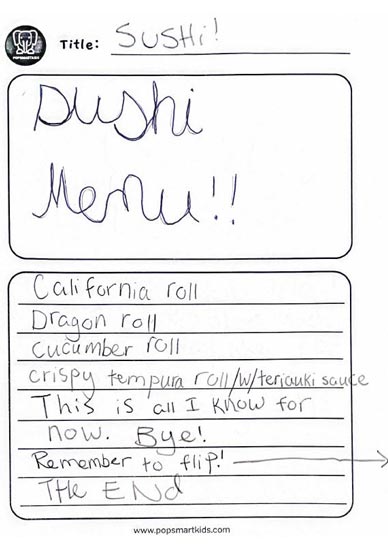 POPSMARTKIDS
Title: SUSHi!
Sushi
Menu!!
California roll
Dragon roll
cucumber roll
crispy tempura roll/w/teriauki sauce
This is all I know for
now. Bye!
Remember to flip!
THE END
www.popsmartkids.com